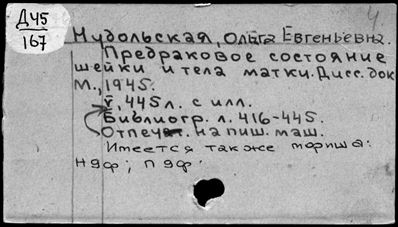 Д45
167
Нудольская, Ольга Евгеньевна.
Предраковое состояние
шейки и тела матки. Дисс. док
М., 1945.
V, 445 л. с илл.
Библиогр. л. 416-445.
Отпечат. на пиш. маш.
Имеется также мфиша:
Ндф; Пдф.